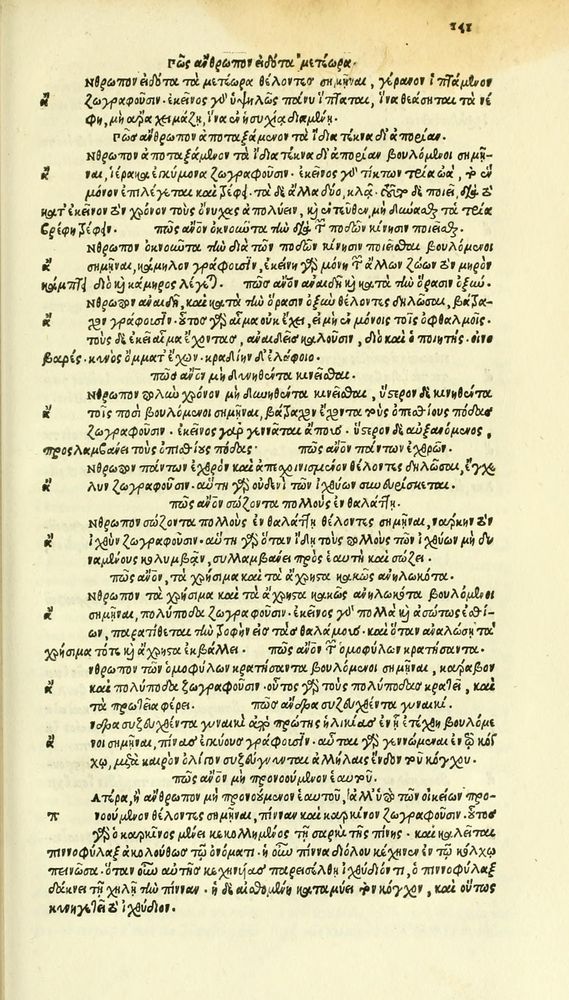 141
Πῶς ἄνθρωπον εἰδότα μετέωρα.
Νθρωπον εἰδότα τὰ μετέωρα θέλοντες σημῆναι, γέρανον ἱπτάμενον
ἄ ζωγραφοῦσιν· ἐκεῖνος γὰρ ὑψηλῶς πάνυ ἵπταται, ἵνα θεάσηται τὰ νέ
φη, μὴ ἄρα χειμάζῃ, ἵνα ἐν ἡσυχίᾳ διαμένῃ.
Πῶς ἄνθρωπον ἀποταξάμενον τὰ ἴδια τέκνα δι' ἀπορίαν.
Νθρωπον ἀποταξάμενον τὰ ἴδια τέκνα δι' ἀπορίαν βουλόμενοι σημῆ-
ἄ ναι, ἱέρακα ἐγκύμονα ζωγραφοῦσιν· ἐκεῖνος γὰρ τίκτων τρία ὠὰ, τὸ ἓν
μόνον ἐπιλέγεται καὶ τρέφει· τὰ δὲ ἄλλα δύο, κλᾷ· τοῦτο δὲ ποιεῖ, διὰ τὸ
κατ' ἐκεῖνον τὸν χρόνον τοὺς ὄνυχας ἀπολύειν, καὶ ἐντεῦθεν μὴ δύνασθαι τὰ τρία
βρέφη τρέφειν. πῶς ἄνθρωπον ὀκνοῦντα τὴν διὰ τῶν ποδῶν κίνησιν ποιεῖσθαι.
Νθρωπον ὀκνοῦντα τὴν διὰ τῶν ποδῶν κίνησιν ποιεῖσθαι βουλόμενοι
ἄ σημῆναι, κάμηλον γράφουσιν, ἐκείνη γὰρ μόνη τῶν ἄλλων ζώων τὸν μηρὸν
κάμπτει διὸ καὶ κάμηρος λέγεται. πῶς ἄνθρωπον ἀναιδῆ καὶ κατὰ τὴν ὅρασιν ὀξύν.
Νθρωπον ἀναιδῆ, καὶ κατὰ τὴν ὅρασιν ὀξὺν θέλοντες δηλῶσαι, βάτρα-
ἄ χον γράφουσιν· οὗτος γὰρ αἷμα οὐκ ἔχει, εἰ μὴ ἐν μόνοις τοῖς ὀφθαλμοῖς·
τοὺς δὲ ἐκεῖ αἷμα ἔχοντας, ἀναιδεῖς καλοῦσιν, διὸ καὶ ὁ ποιητής· οἰνο
βαρές· κυνὸς ὄμματ' ἔχων· κραδίην δ' ἐλάφοιο.
πῶς ἄνθρωπον μὴ δυνηθέντα κινεῖσθαι.
Νθρωπον πολὺν χρόνον μὴ δυνηθέντα κινεῖσθαι, ὕστερον δὲ κινηθέντα
ἄ τοῖς ποσὶ βουλόμενοι σημῆναι, βάτραχον ἔχοντα τοὺς ὀπισθίους πόδας
ζωγραφοῦσιν· ἐκεῖνος γὰρ γεννᾶται ἄπους· ὕστερον δὲ αὐξανόμενος,
προσλαμβάνει τοὺς ὀπισθίους πόδας· πῶς ἄνθρωπον πάντων ἐχθρόν.
Νθρωπον πάντων ἐχθρὸν καὶ ἀπεσχοινισμένον θέλοντες δηλῶσαι, ἔγχε
ἄ λυν ζωγραφοῦσιν· αὕτη γὰρ οὐδενὶ τῶν ἰχθύων συνευρίσκεται.
πῶς ἄνθρωπον σώζοντα πολλοὺς ἐν θαλάττῃ.
Νθρωπον σώζοντα πολλοὺς ἐν θαλάττῃ θέλοντες σημῆναι, νάρκην τὸν
ἄ ἰχθὺν ζωγραφοῦσιν· αὕτη γὰρ ὅταν ἴδῃ τοὺς πολλοὺς τῶν ἰχθύων μὴ δυ
ναμένους κολυμβᾶν, συλλαμβάνει πρὸς ἑαυτὴ καὶ σώζει.
πῶς ἄνθρωπον, τὰ χρήσιμα καὶ τὰ ἄχρηστα κακῶς ἀνηλωκότα.
Νθρωπον τὰ χρήσιμα καὶ τὰ ἄχρηστα κακῶς ἀνηλωκότα βουλόμενοι
ἄ σημῆναι, πολύποδα ζωγραφοῦσιν· ἐκεῖνος γὰρ πολλὰ καὶ ἀσώτως ἐσθί-
ων, παρατίθεται τὴν τροφὴν εἰς τὰς θαλάμους· καὶ ὅταν ἀναλώσῃ τὰ
χρήσιμα τότε καὶ ἄχρηστα ἐκβάλλει. πῶς ἄνθρωπον τῶν ὁμοφύλων κρατήσαντα.
νθρωπον τῶν ὁμοφύλων κρατήσαντα βουλόμενοι σημῆναι, κάραβον
ἄ καὶ πολύποδα ζωγραφοῦσιν· οὗτος γὰρ τοὺς πολύποδας κρατεῖ, καὶ
τὰ πρωτεῖα φέρει. πῶς ἄνδρα συζευχθέντα γυναικί.
νδρα συζευχθέντα γυναικὶ ἀπὸ πρώτης ἡλικίας ἐν ᾗ ἐτέχθη βουλόμε
ἄ νοι σημῆναι, πίννας ἐγκύους γράφουσιν· αὗται γὰρ γεννώμεναι ἐν τῷ κόγ
χῳ, μετὰ καιρὸν ὀλίγον συζεύγνυνται ἀλλήλαις ἔνδον τοῦ κόγχου.
πῶς ἄνθρωπον μὴ προνοούμενον ἑαυτοῦ.
Ατέρα, ἢ ἄνθρωπον μὴ προνοούμενον ἑαυτοῦ, ἀλλ' ὑπὸ τῶν οἰκείων προ-
π νοούμενον θέλοντες σημῆναι, πίνναν καὶ καρκίνον ζωγραφοῦσιν· οὗτος
γὰρ ὁ καρκίνος μένει κεκολλημένος τῇ σαρκὶ τῆς πίνης· καὶ καλεῖται
πιννοφύλαξ ἀκολούθως τῷ ὀνόματι· ἡ οὖν πίννα διόλου κέχηνεν ἐν τῷ κόγχῳ
πεινῶσα· ὅταν οὖν αὐτῆς κεχηνυίας παρεισέλθῃ ἰχθύδιόν τι, ὁ πιννοφύλαξ
δάκνει τῇ χηλῇ τὴν πίνναν· ἡ δὲ αἰσθομένη καταμύει τὸν κόγχον, καὶ οὕτως
κυνηγετεῖ τὸ ἰχθύδιον.